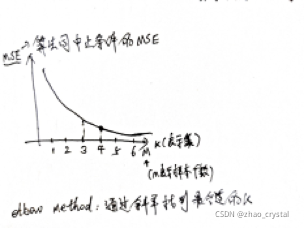 MSE → 算法园中止条件的MSE
1 2 3 4 5 6 M K(表示簇)
(m表示样本个数)
elbow method: 通过斜率找到最合适的K
CSDN @zhao_crystal